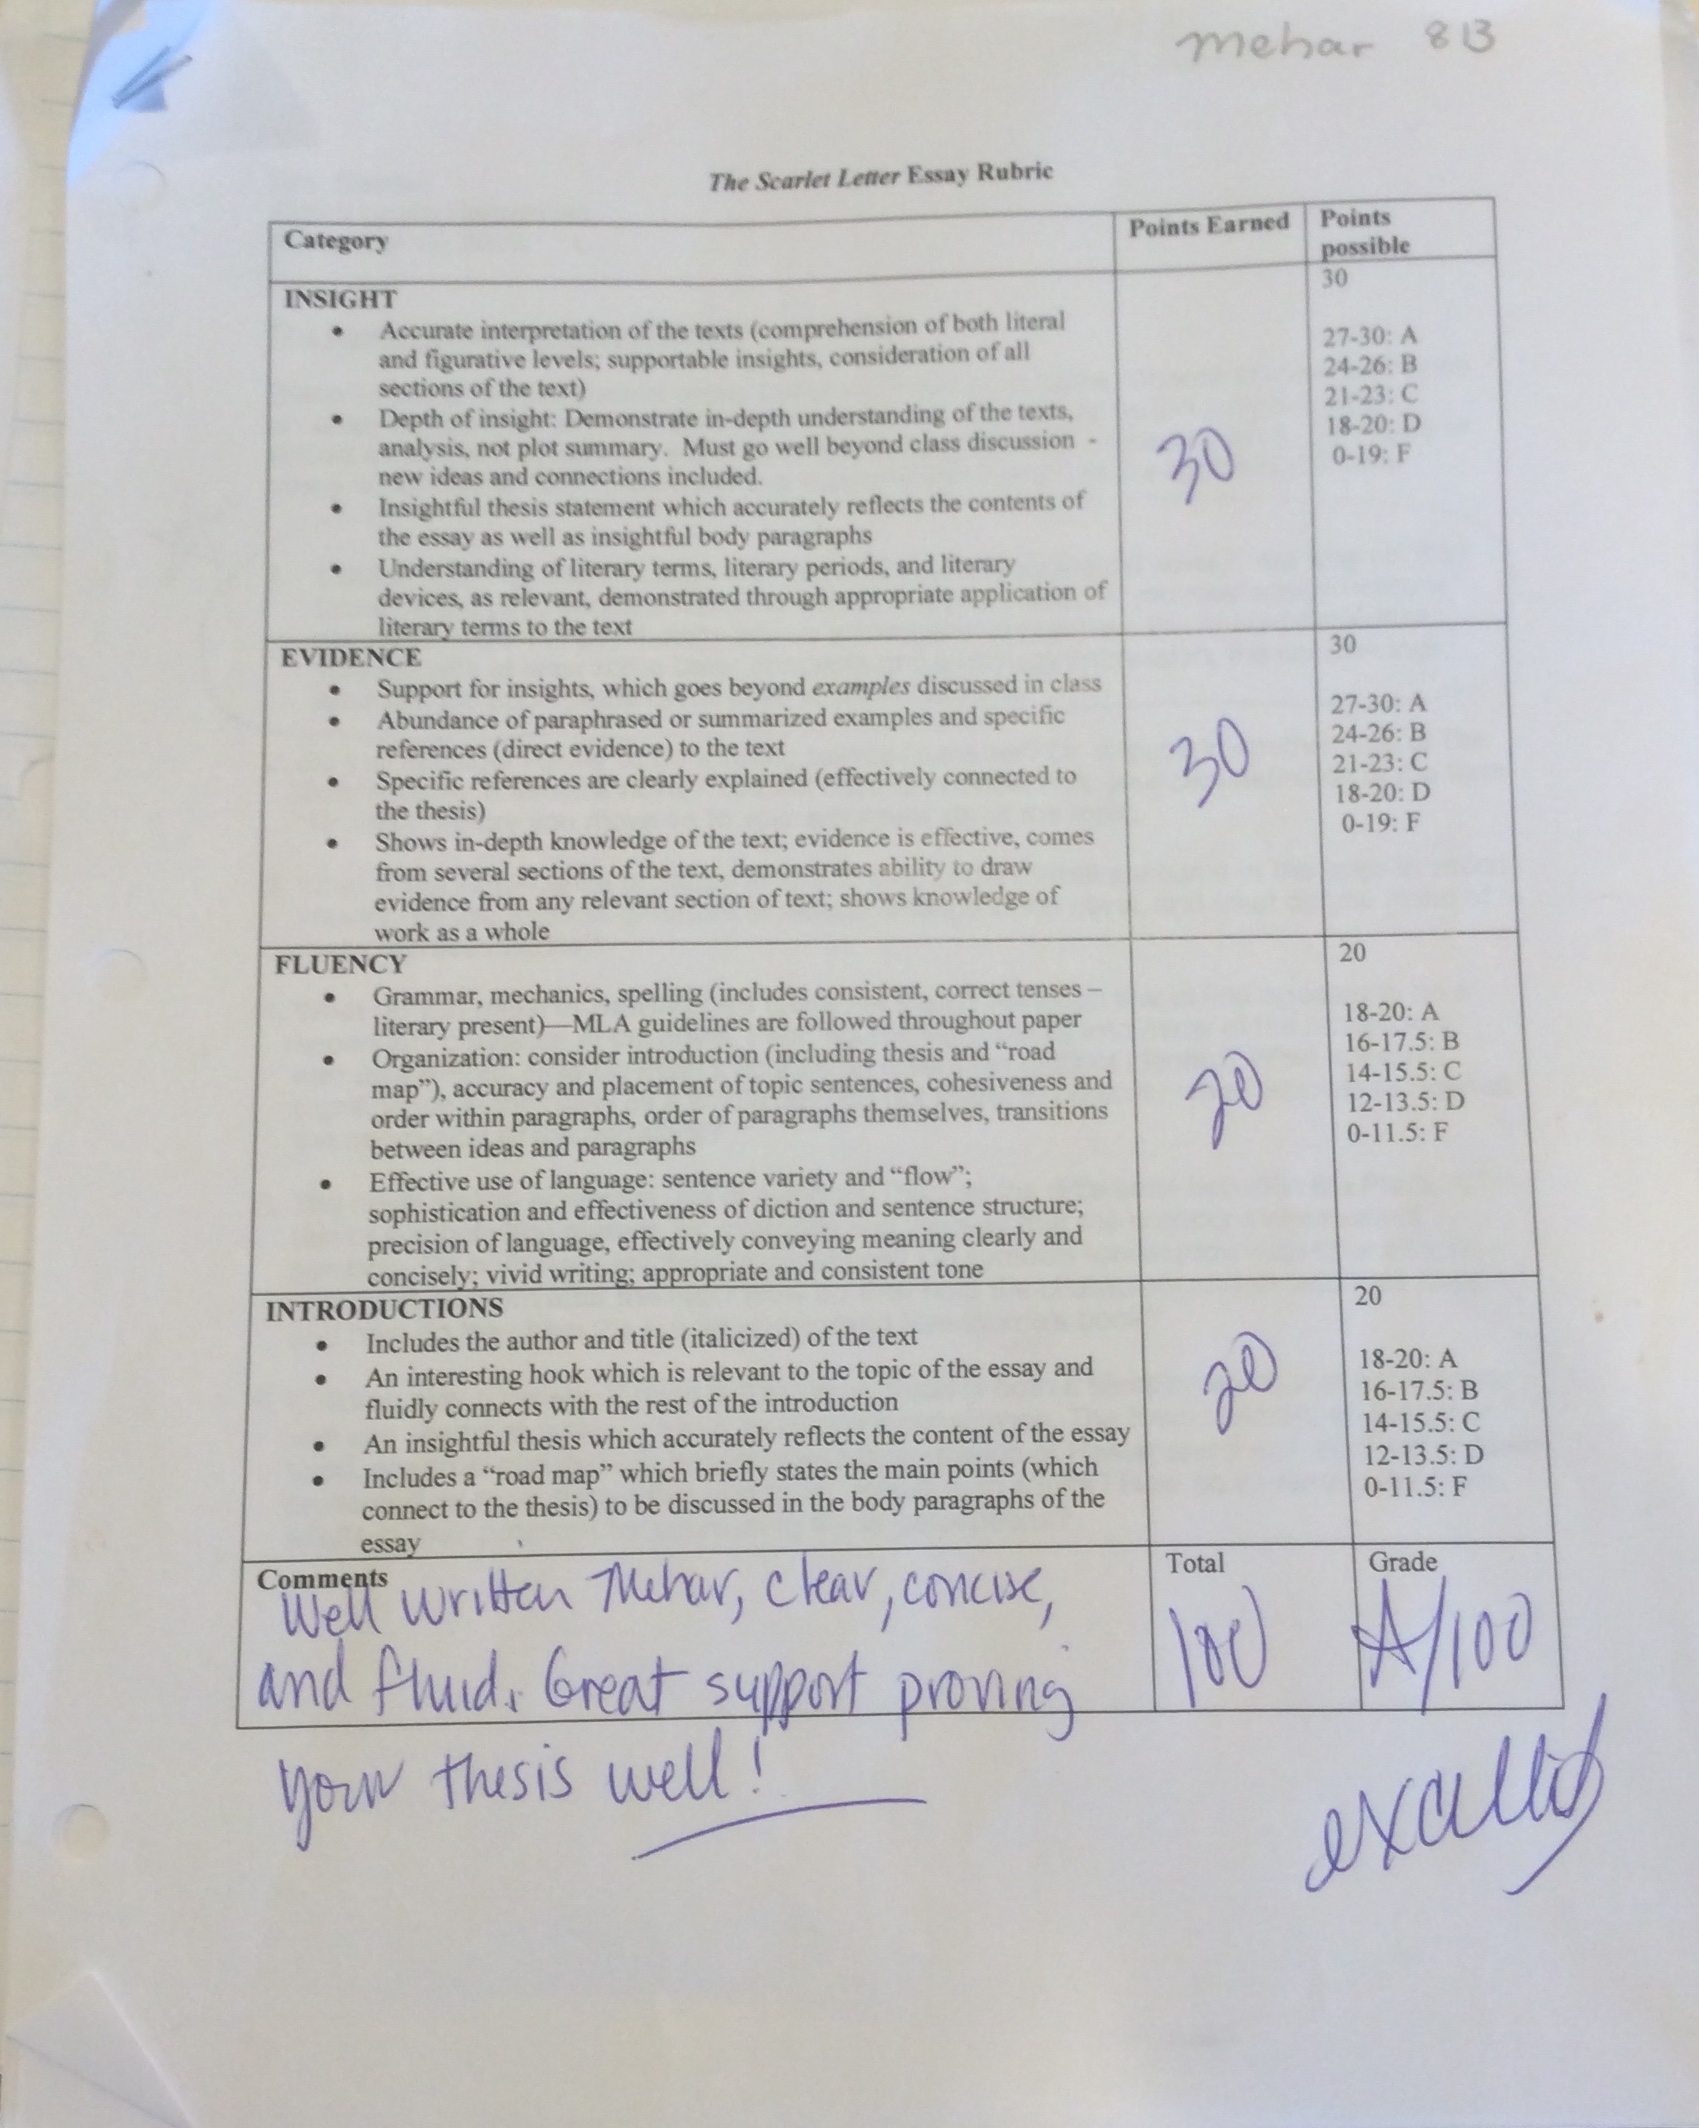 mehar 8B
The Scarlet Letter Essay Rubric
Category
Points Earned
Points
possible
INSIGHT
• Accurate interpretation of the texts (comprehension of both literal
and figurative levels; supportable insights, consideration of all
sections of the text)
• Depth of insight: Demonstrate in-depth understanding of the texts,
analysis, not plot summary. Must go well beyond class discussion -
new ideas and connections included.
• Insightful thesis statement which accurately reflects the contents of
the essay as well as insightful body paragraphs
• Understanding of literary terms, literary periods, and literary
devices, as relevant, demonstrated through appropriate application of
literary terms to the text
30
30
27-30: A
24-26: B
21-23: C
18-20: D
0-19: F
EVIDENCE
• Support for insights, which goes beyond examples discussed in class
• Abundance of paraphrased or summarized examples and specific
references (direct evidence) to the text
• Specific references are clearly explained (effectively connected to
the thesis)
• Shows in-depth knowledge of the text; evidence is effective, comes
from several sections of the text, demonstrates ability to draw
evidence from any relevant section of text; shows knowledge of
work as a whole
30
30
27-30: A
24-26: B
21-23: C
18-20: D
0-19: F
FLUENCY
• Grammar, mechanics, spelling (includes consistent, correct tenses –
literary present)—MLA guidelines are followed throughout paper
• Organization: consider introduction (including thesis and “road
map”), accuracy and placement of topic sentences, cohesiveness and
order within paragraphs, order of paragraphs themselves, transitions
between ideas and paragraphs
• Effective use of language: sentence variety and “flow”;
sophistication and effectiveness of diction and sentence structure;
precision of language, effectively conveying meaning clearly and
concisely; vivid writing; appropriate and consistent tone
20
20
18-20: A
16-17.5: B
14-15.5: C
12-13.5: D
0-11.5: F
INTRODUCTIONS
• Includes the author and title (italicized) of the text
• An interesting hook which is relevant to the topic of the essay and
fluidly connects with the rest of the introduction
• An insightful thesis which accurately reflects the content of the essay
• Includes a “road map” which briefly states the main points (which
connect to the thesis) to be discussed in the body paragraphs of the
essay
20
20
18-20: A
16-17.5: B
14-15.5: C
12-13.5: D
0-11.5: F
Comments
Well written Mehar, clear, concise,
and fluid. Great support proving
your thesis well!
Total
100
Grade
A/100